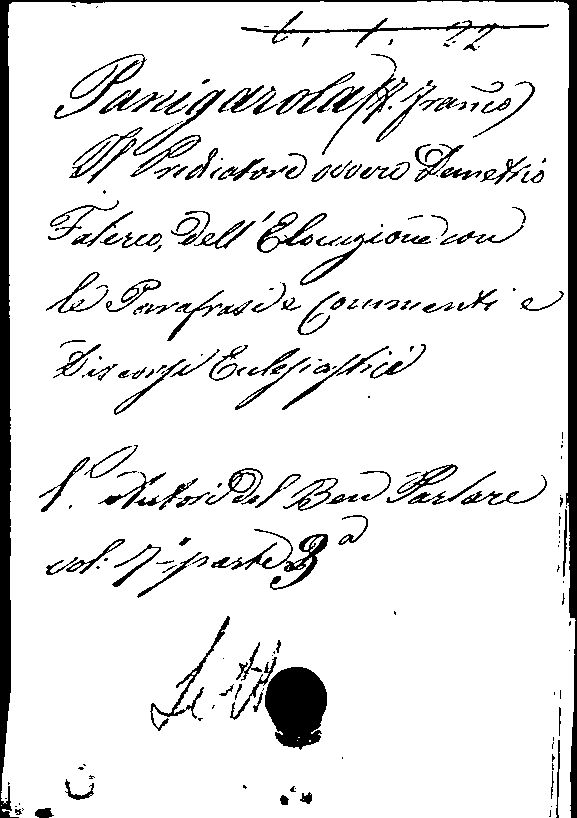 6. 1. 22
Panigarola (F. Franco)
Il Predicatore ovvero Demetrio
Falereo, dell'Elocuzione con
le Parafrasi e Commenti e
Discorsi Eclesiastici
V. Autori del Ben Parlare
vol: 7º parte 3ª
Lett